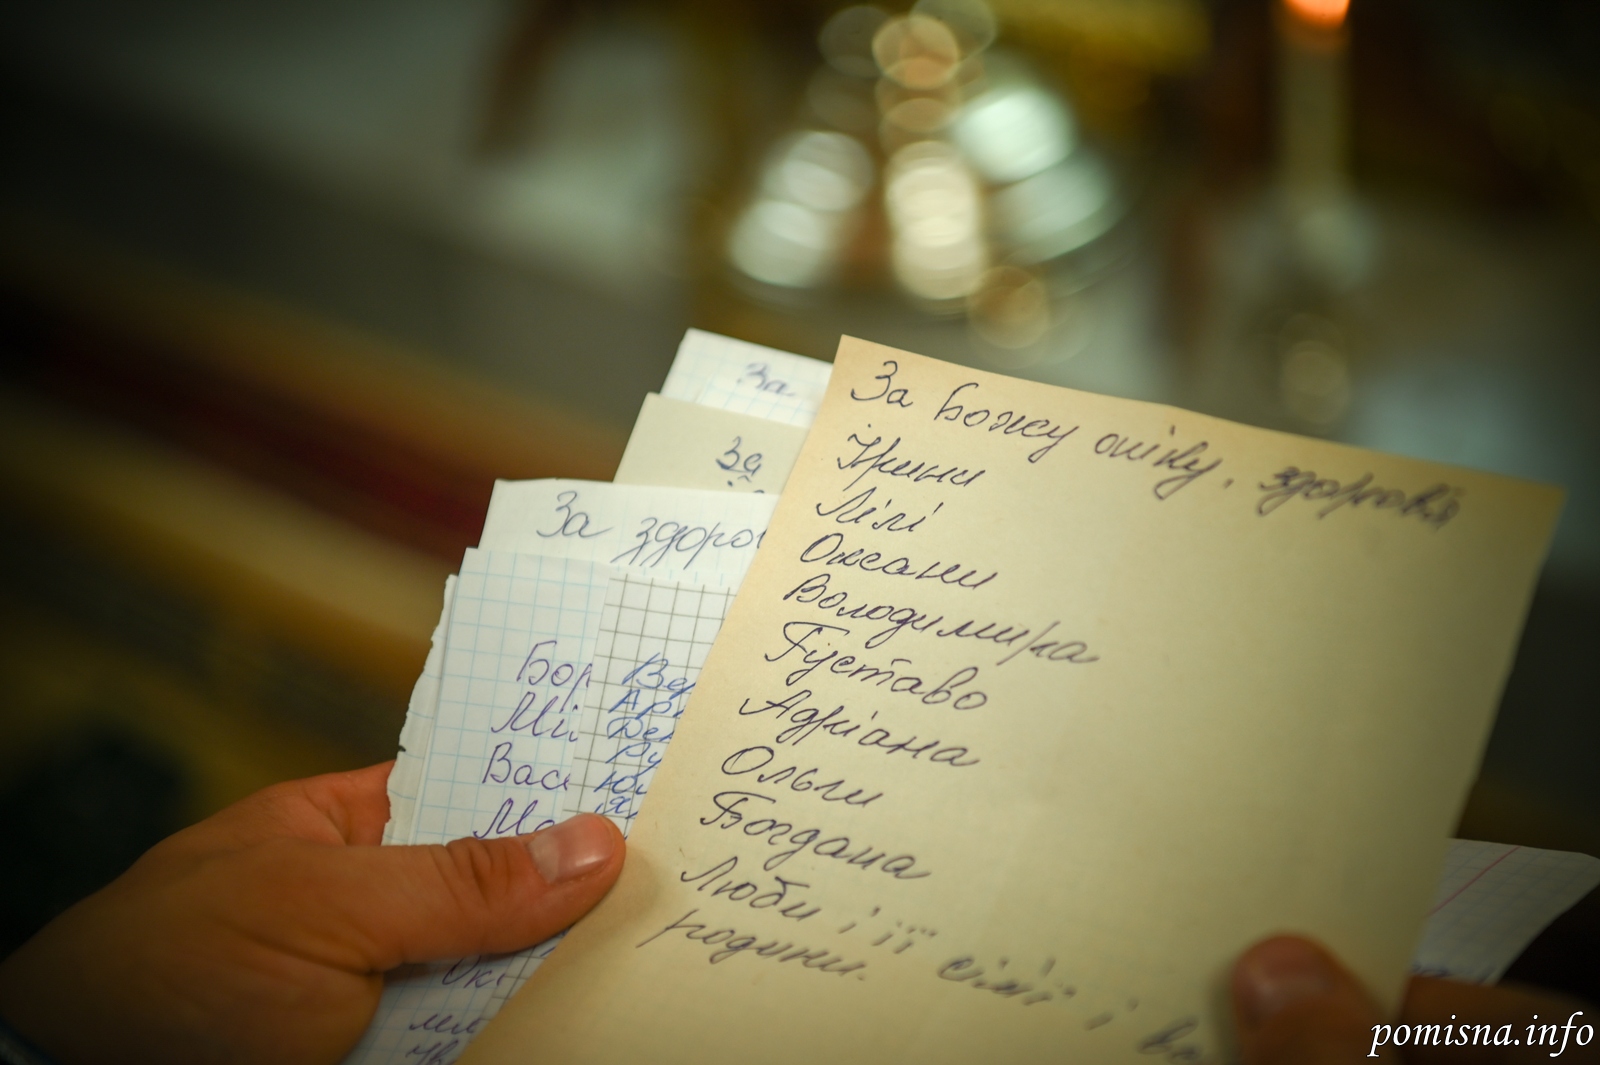 За Божу опіку, здоров'я
Ірини
Лілі
Оксани
Володимира
Густаво
Адріана
Ольги
Богдана
Люби і її сім'ї і
родини.
За
За
За здоро
Бор
Мі
Вас
Ма
Ве
Ар
Ден
Ру
Юл
Ок
pomisna.info